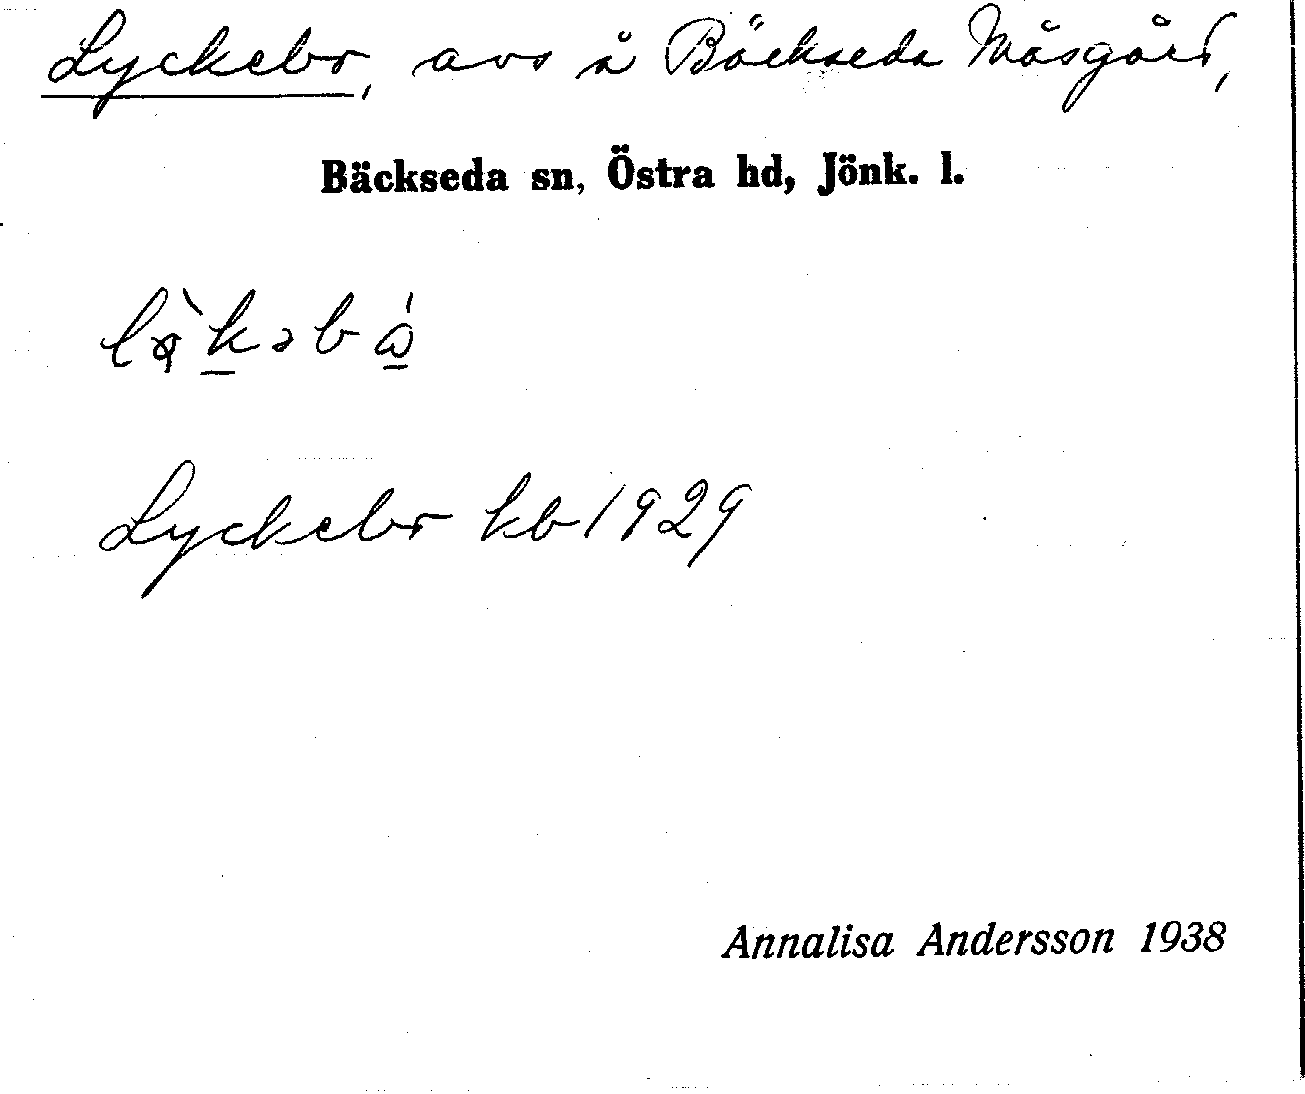 Lyckebo, avs å Bäckseda Måsgård,
Bäckseda sn, Östra hd, Jönk. l.
Lyckebo kb 1929
Annalisa Andersson 1938